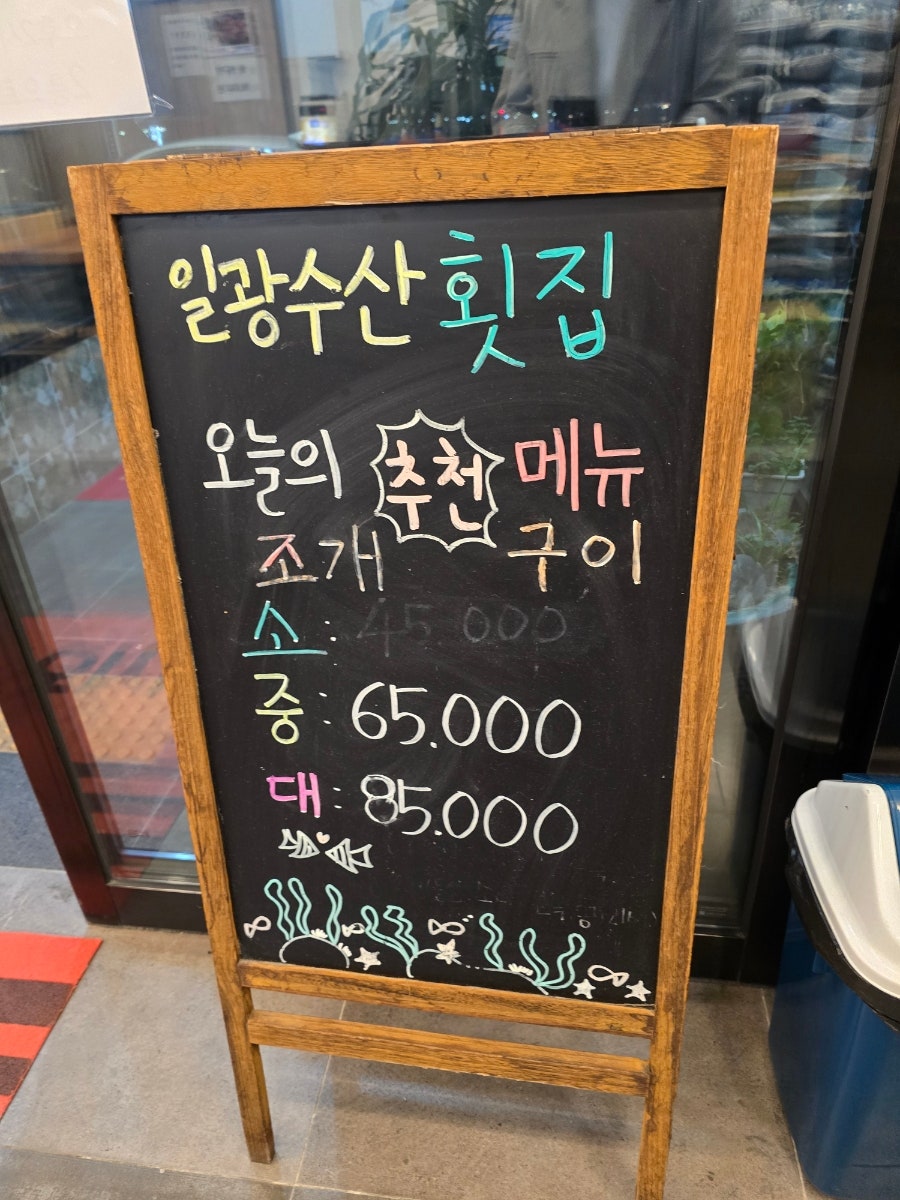 일광수산 횟집
오늘의 추천 메뉴
조개 구이
소 : 45.000
중 : 65.000
대 : 85.000